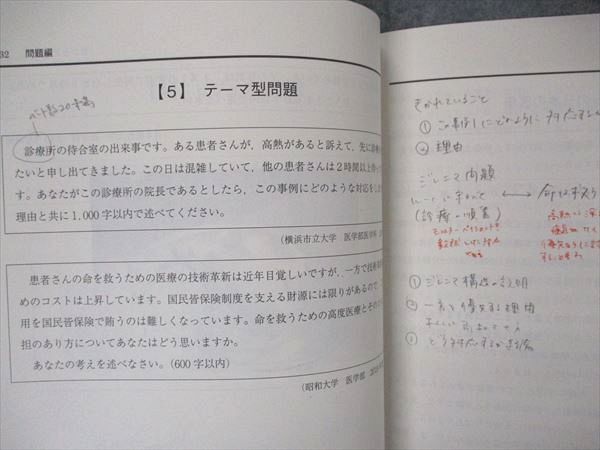 32 問題編
【5】 テーマ型問題
ベット数20未満
診療所の待合室の出来事です。ある患者さんが、高熱があると訴えて、先に診
たいと申し出てきました。この日は混雑していて、他の患者さんは2時間以上待
す。あなたがこの診療所の院長であるとしたら、この事例にどのような対応をし
理由と共に1,000字以内で述べてください。
(横浜市立大学 医学部医学科
患者さんの命を救うための医療の技術革新は近年目覚しいですが、一方で技術
めのコストは上昇しています。国民皆保険制度を支える財源には限りがあるので
用を国民皆保険で賄うのは難しくなっています。命を救うための高度医療とその
担のあり方についてあなたはどう思いますか。
あなたの考えを述べなさい。(600字以内)
(昭和大学 医学部 20
きかれていること
① この事例にどのように対応する
② 理由
ジレンマ問題
(診療の順番)
① ジレンマ構造の説明
② 一方を優先する理由
③ どう対応するか